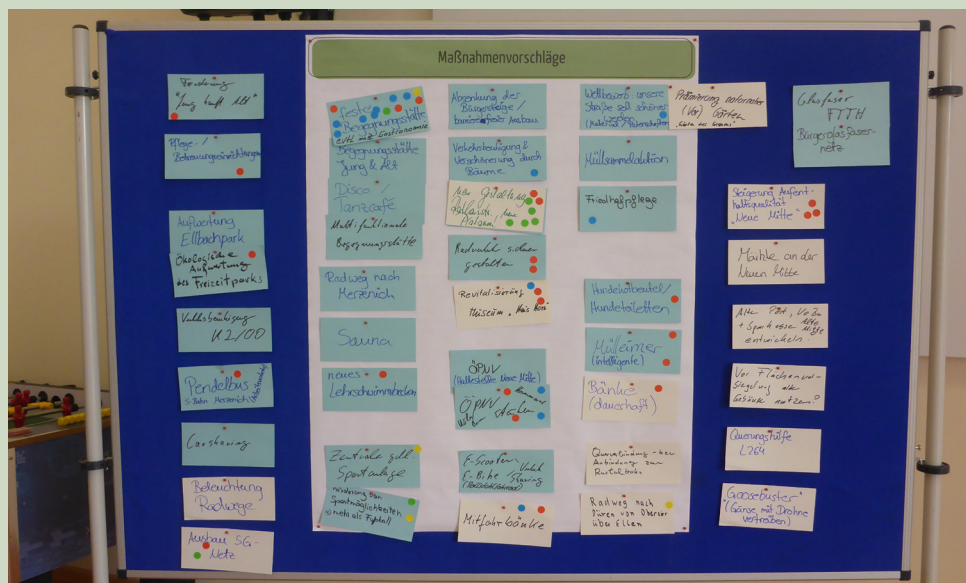 Maßnahmenvorschläge
Förderung
"Jung kauft Alt"
Pflege-/
Betreuungseinrichtungen
Aufwertung
Ellbachpark
Ökologische
Aufwertung
des Freizeitparks
Verkehrsberuhigung
K2/OO
Pendelbus
S-Bahn Merzenich
Carsharing
Beleuchtung
Radwege
Ausbau 5G-
Netz
feste
Begegnungsstätte
evtl. mit Gastronomie
Begegnungsstätte
Jung & Alt
Disco /
Tanzcafé
Multifunktionale
Begegnungsstätte
Radweg nach
Merzenich
Sauna
neues
Lehrschwimmbecken
Zentrale gell.
Sportanlage
Förderung von
Sportmöglichkeiten
mehr als Fußball
Absenkung der
Bürgersteige /
barrierefreier Ausbau
Verkehrsberuhigung &
Verschönerung durch
Bäume
Neu Gestaltung
Radverkehr sicherer
gestalten
Revitalisierung
Museum "Haus Horn"
ÖPNV
(Haltestelle Neue Mitte)
ÖPNV
stärken
E-Scooter
E-Bike / Sharing
Mitfahrbänke
Wettbewerb: unsere
Straße soll schöner
werden
(Material / Patenschaften)
Müllsammelaktion
Friedhofpflege
Hundekotbeutel/
Hundetoiletten
Mülleimer
(intelligente)
Bänke
(dauerhaft)
Querverbindung - bzw
Anbindung zur
Rurtalbahn
Radweg nach
Düren von Oberzier
über Ellen
Prämierung naturnaher
(Vor) Gärten
Glasfaser
FTTH
Bürgerglasfaser-
netz
Steigerung Aufent-
haltsqualität
"Neue Mitte"
Märkte an der
Neuen Mitte
Alte Post, VoBa
+ Sparkasse Alte
Mitte
entwickeln!
Vor Flächenver-
siegelung alte
Gebäude nutzen!
Querungshilfe
L264
"Goosebuster"
(Gänse mit Drohne
vertreiben)